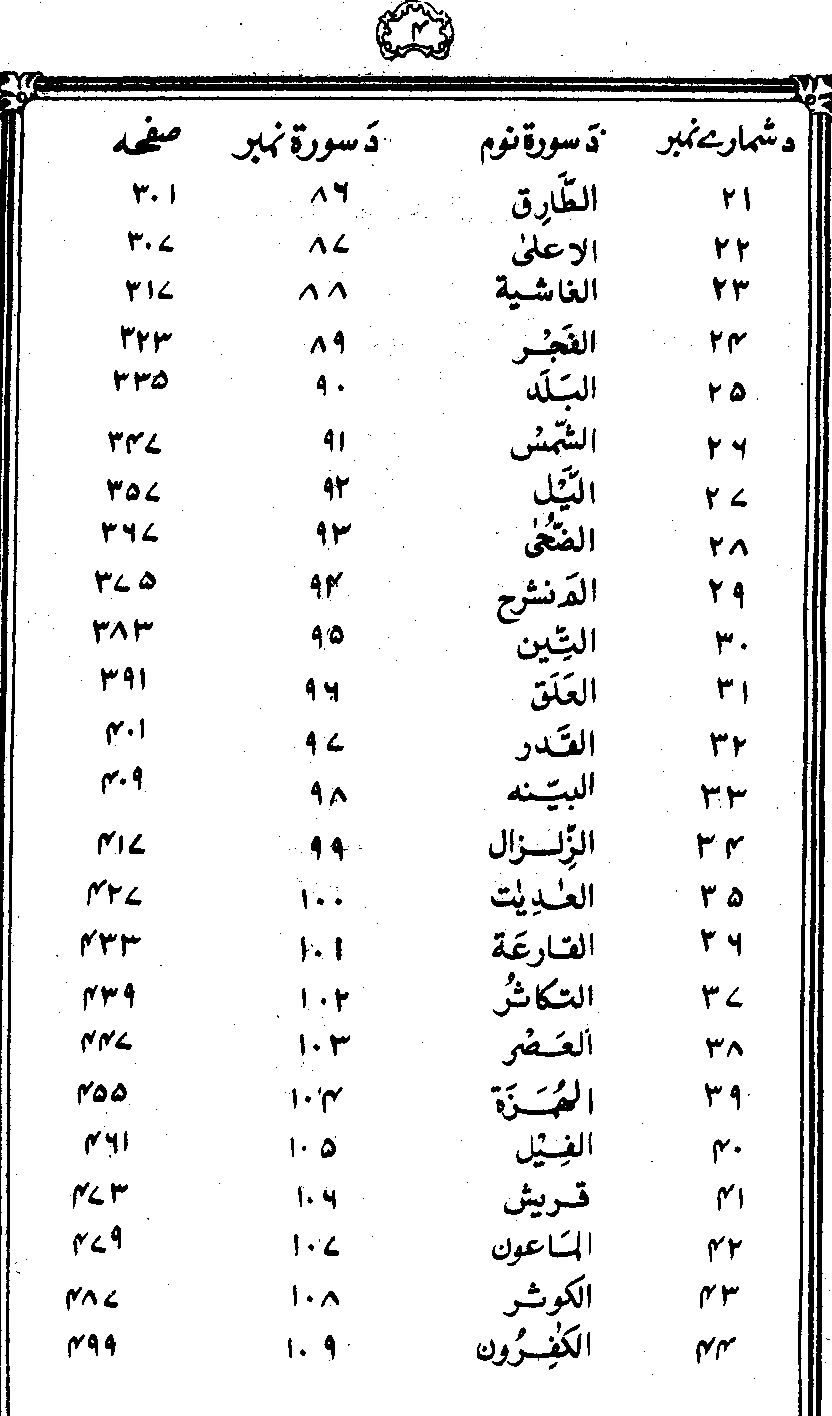 ۴
د شمارے نمبر دَ سورة نوم دَ سورة نمبر صفحه
۲۱ الطَّارِق ۸۶ ۳۰۱
۲۲ الاعلیٰ ۸۷ ۳۰۷
۲۳ الغاشية ۸۸ ۳۱۷
۲۴ الفَجْر ۸۹ ۳۲۳
۲۵ البَلَد ۹۰ ۳۳۵
۲۶ الشَّمْس ۹۱ ۳۴۷
۲۷ الَّيْل ۹۲ ۳۵۷
۲۸ الضُّحٰى ۹۳ ۳۶۷
۲۹ الَمْ نشرح ۹۴ ۳۷۵
۳۰ التِّين ۹۵ ۳۸۳
۳۱ العَلَق ۹۶ ۳۹۱
۳۲ القَدر ۹۷ ۴۰۱
۳۳ البيّنه ۹۸ ۴۰۹
۳۴ الزِّلزال ۹۹ ۴۱۷
۳۵ العٰدِيٰت ۱۰۰ ۴۲۷
۳۶ القارعَة ۱۰۱ ۴۳۳
۳۷ التكاثُر ۱۰۲ ۴۳۹
۳۸ العَصْر ۱۰۳ ۴۴۷
۳۹ الهُمَزَة ۱۰۴ ۴۵۵
۴۰ الفِيْل ۱۰۵ ۴۶۱
۴۱ قريش ۱۰۶ ۴۷۳
۴۲ المَاعون ۱۰۷ ۴۷۹
۴۳ الكوثر ۱۰۸ ۴۸۷
۴۴ الكٰفِرُون ۱۰۹ ۴۹۹